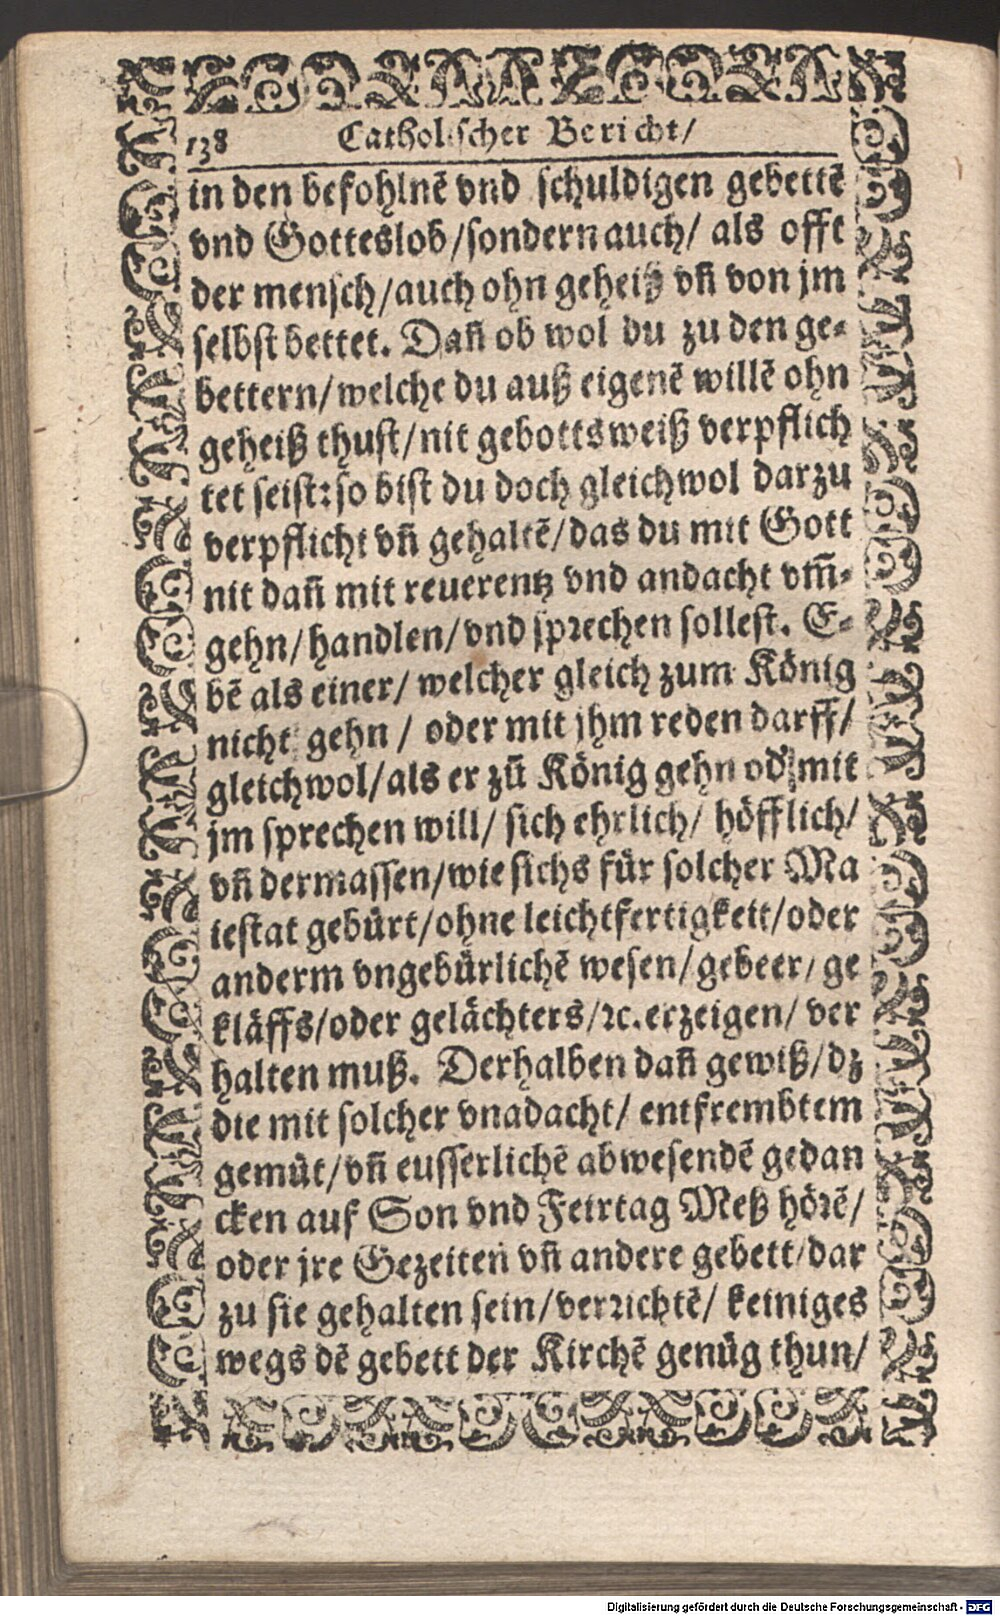 138 Catholischer Bericht/
in den befohlnē vnd schuldigen gebettē
vnd Gotteslob/sondern auch/ als offt
der mensch/auch ohn geheiß vñ von jm
selbst bettet. Dañ ob wol du zu den ge-
bettern/welche du auß eigenē willē ohn
geheiß thust/nit gebottsweiß verpflich
tet seist:so bist du doch gleichwol darzu
verpflicht vñ gehaltē/das du mit Gott
nit dañ mit reuerentz vnd andacht vm̃-
gehn/handlen/vnd sprechen sollest. E-
bē als einer/ welcher gleich zum König
nicht gehn / oder mit jhm reden darff/
gleichwol/als er zū König gehn od' mit
jm sprechen will/ sich ehrlich/ höfflich/
vñ dermassen/wie sichs für solcher Ma
iestat gebürt/ohne leichtfertigkeit/oder
anderm vngebürlichē wesen/gebeer/ ge
kläffs/oder gelächters/ꝛc.erzeigen/ ver
halten muß. Derhalben dañ gewiß/dz
die mit solcher vnadacht/ entfrembtem
gemüt/vñ eusserlichē abwesendē gedan
cken auf Son vnd Feirtag Meß hörē/
oder jre Gezeiten vñ andere gebett/dar
zu sie gehalten sein/verrichtē/ keiniges
wegs dē gebett der Kirchē genüg thun/
Digitalisierung gefördert durch die Deutsche Forschungsgemeinschaft - DFG